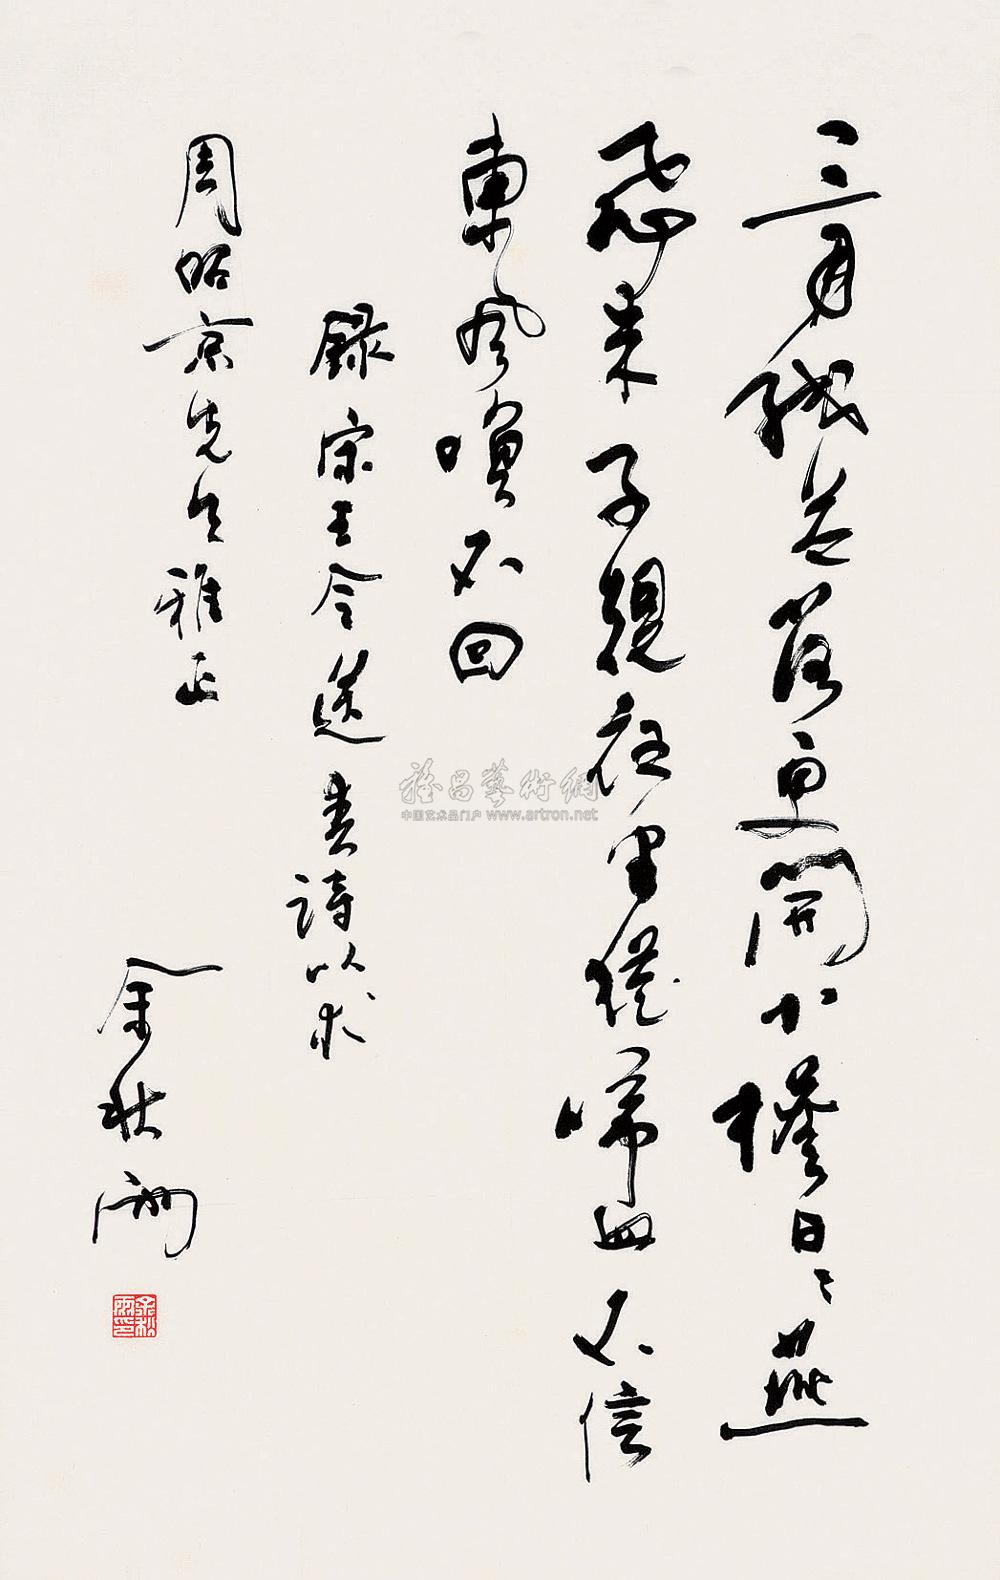 三月残花落更開小檐日々燕
飛来子規夜半猶啼血不信
東風喚不回
録宋王令送春詩以求
周昭京先生雅正
余秋雨
余秋雨印
雅昌藝術網
中国艺术品门户 www.artron.net